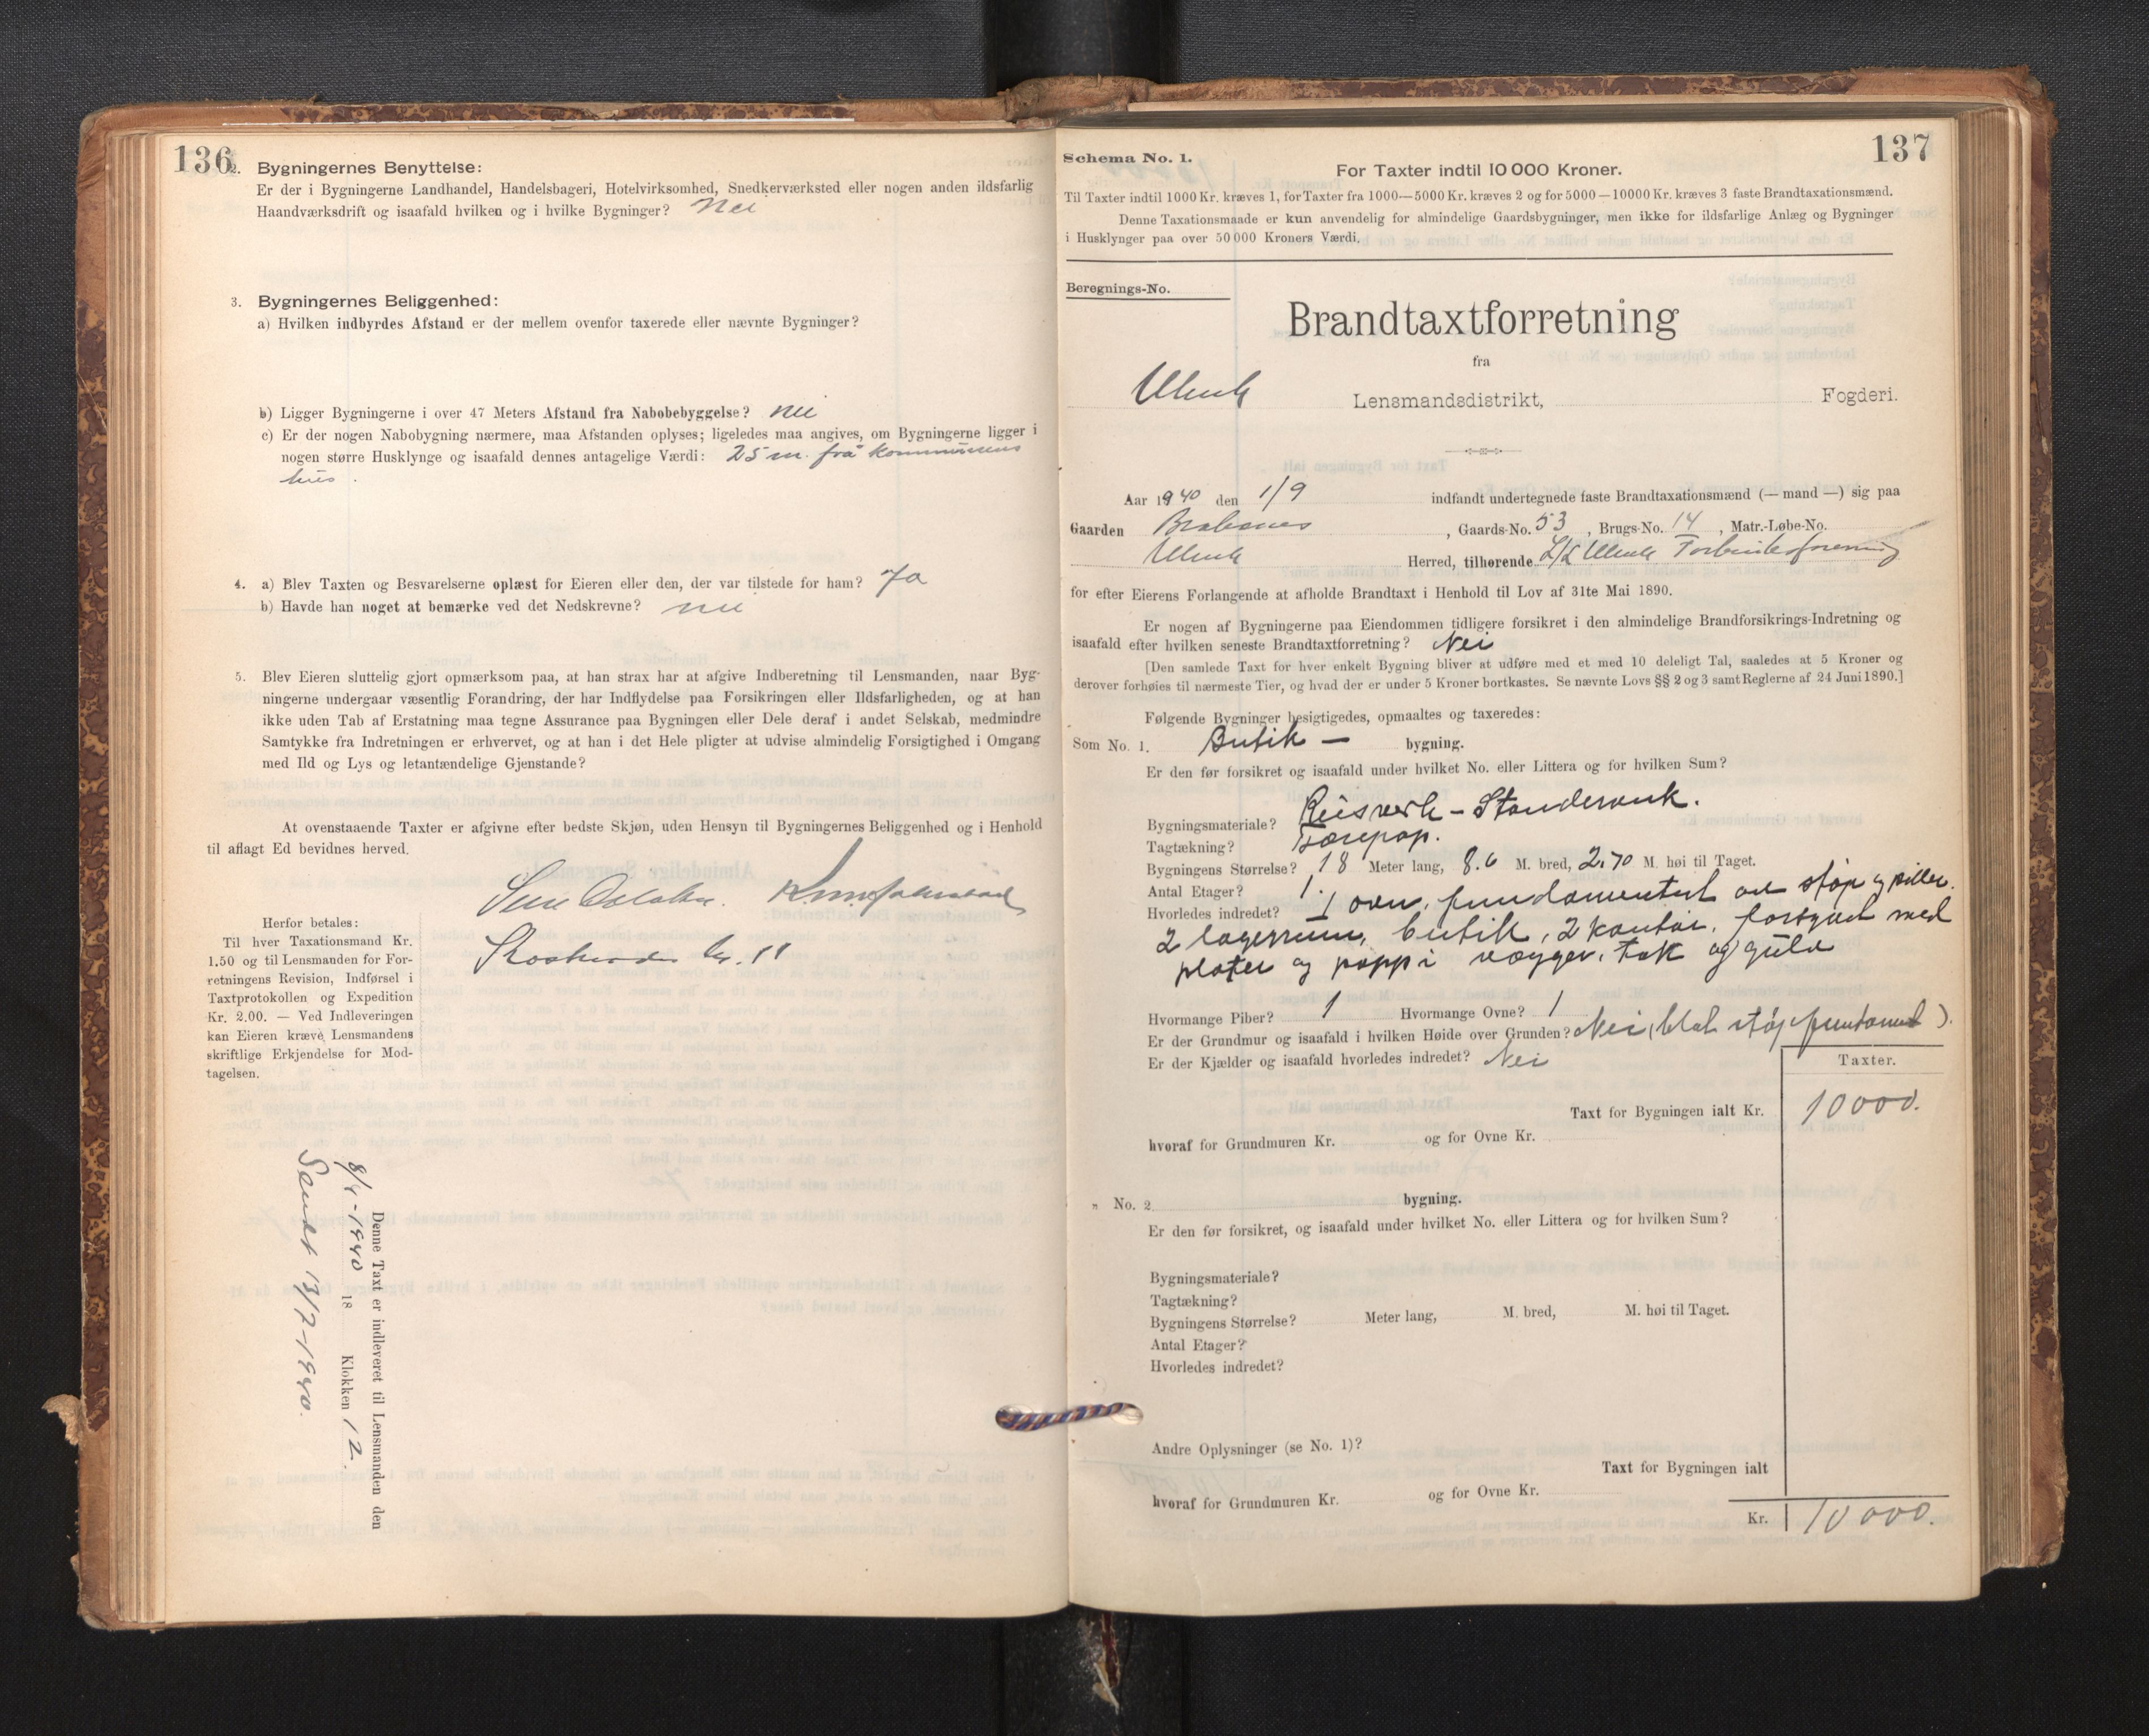 136
2. Bygningernes Benyttelse:
Er der i Bygningerne Landhandel, Handelsbageri, Hotelvirksomhed, Snedkerværksted eller nogen anden ildsfarlig
Haandværksdrift og isaafald hvilken og i hvilke Bygninger? Nei
3. Bygningernes Beliggenhed:
a) Hvilken indbyrdes Afstand er der mellem ovenfor taxerede eller nævnte Bygninger?
b) Ligger Bygningerne i over 47 Meters Afstand fra Nabobebyggelse? nei
c) Er der nogen Nabobygning nærmere, maa Afstanden oplyses; ligeledes maa angives, om Bygningerne ligger i
nogen større Husklynge og isaafald dennes antagelige Værdi: 25 m. frå kommunens
hus.
4. a) Blev Taxten og Besvarelserne oplæst for Eieren eller den, der var tilstede for ham? Ja
b) Havde han noget at bemærke ved det Nedskrevne? nei
5. Blev Eieren sluttelig gjort opmærksom paa, at han strax har at afgive Indberetning til Lensmanden, naar Byg-
ningerne undergaar væsentlig Forandring, der har Indflydelse paa Forsikringen eller Ildsfarligheden, og at han
ikke uden Tab af Erstatning maa tegne Assurance paa Bygningen eller Dele deraf i andet Selskab, medmindre
Samtykke fra Indretningen er erhvervet, og at han i det Hele pligter at udvise almindelig Forsigtighed i Omgang
med Ild og Lys og letantændelige Gjenstande?
At ovenstaaende Taxter er afgivne efter bedste Skjøn, uden Hensyn til Bygningernes Beliggenhed og i Henhold
til aflagt Ed bevidnes herved.
Herfor betales:
Til hver Taxationsmand Kr.
1.50 og til Lensmanden for For-
retningens Revision, Indførsel i
Taxtprotokollen og Expedition
Kr. 2.00. — Ved Indleveringen
kan Eieren kræve Lensmandens
skriftlige Erkjendelse for Mod-
tagelsen.
Denne Taxt er indleveret til Lensmanden den
1940 18 Klokken 12.
Sendt 13/7-1940.
137
Schema No. 1.
For Taxter indtil 10 000 Kroner.
Til Taxter indtil 1000 Kr. kræves 1, for Taxter fra 1000—5000 Kr. kræves 2 og for 5000—10000 Kr. kræves 3 faste Brandtaxationsmænd.
Denne Taxationsmaade er kun anvendelig for almindelige Gaardsbygninger, men ikke for ildsfarlige Anlæg og Bygninger
i Husklynger paa over 50 000 Kroners Værdi.
Beregnings-No.
Brandtaxtforretning
fra
Lensmandsdistrikt, Fogderi.
Aar 1940 den 1/9 indfandt undertegnede faste Brandtaxationsmænd (— mand —) sig paa
Gaarden , Gaards-No. 53, Brugs-No. 14, Matr.-Løbe-No.
Herred, tilhørende
for efter Eierens Forlangende at afholde Brandtaxt i Henhold til Lov af 31te Mai 1890.
Er nogen af Bygningerne paa Eiendommen tidligere forsikret i den almindelige Brandforsikrings-Indretning og
isaafald efter hvilken seneste Brandtaxtforretning? Nei
[Den samlede Taxt for hver enkelt Bygning bliver at udføre med et med 10 deleligt Tal, saaledes at 5 Kroner og
derover forhøies til nærmeste Tier, og hvad der er under 5 Kroner bortkastes. Se nævnte Lovs §§ 2 og 3 samt Reglerne af 24 Juni 1890.]
Følgende Bygninger besigtigedes, opmaaltes og taxeredes:
Som No. 1. Butik — bygning.
Er den før forsikret og isaafald under hvilket No. eller Littera og for hvilken Sum?
Bygningsmateriale? Reisverk -
Tagtækning?
Bygningens Størrelse? 18 Meter lang, 8.6 M. bred, 2.70 M. høi til Taget.
Antal Etager? 1.
Hvorledes indredet? 1 ovn, fundamentert støp og
2 lagerrum, butik, 2 kontor, med
plater og papp i vægger, tak og gulv
Hvormange Piber? 1 Hvormange Ovne? 1
Er der Grundmur og isaafald i hvilken Høide over Grunden? Nei, støp fundament).
Er der Kjælder og isaafald hvorledes indredet? Nei
Taxter.
Taxt for Bygningen ialt Kr. 10000.
hvoraf for Grundmuren Kr. og for Ovne Kr.
" No. 2 bygning.
Er den før forsikret, og isaafald under hvilket No. eller Littera og for hvilken Sum?
Bygningsmateriale?
Tagtækning?
Bygningens Størrelse? Meter lang, M. bred, M. høi til Taget.
Antal Etager?
Hvorledes indredet?
Andre Oplysninger (se No. 1)?
Taxt for Bygningen ialt
hvoraf for Grundmuren Kr. og for Ovne Kr.
Kr. 10000.